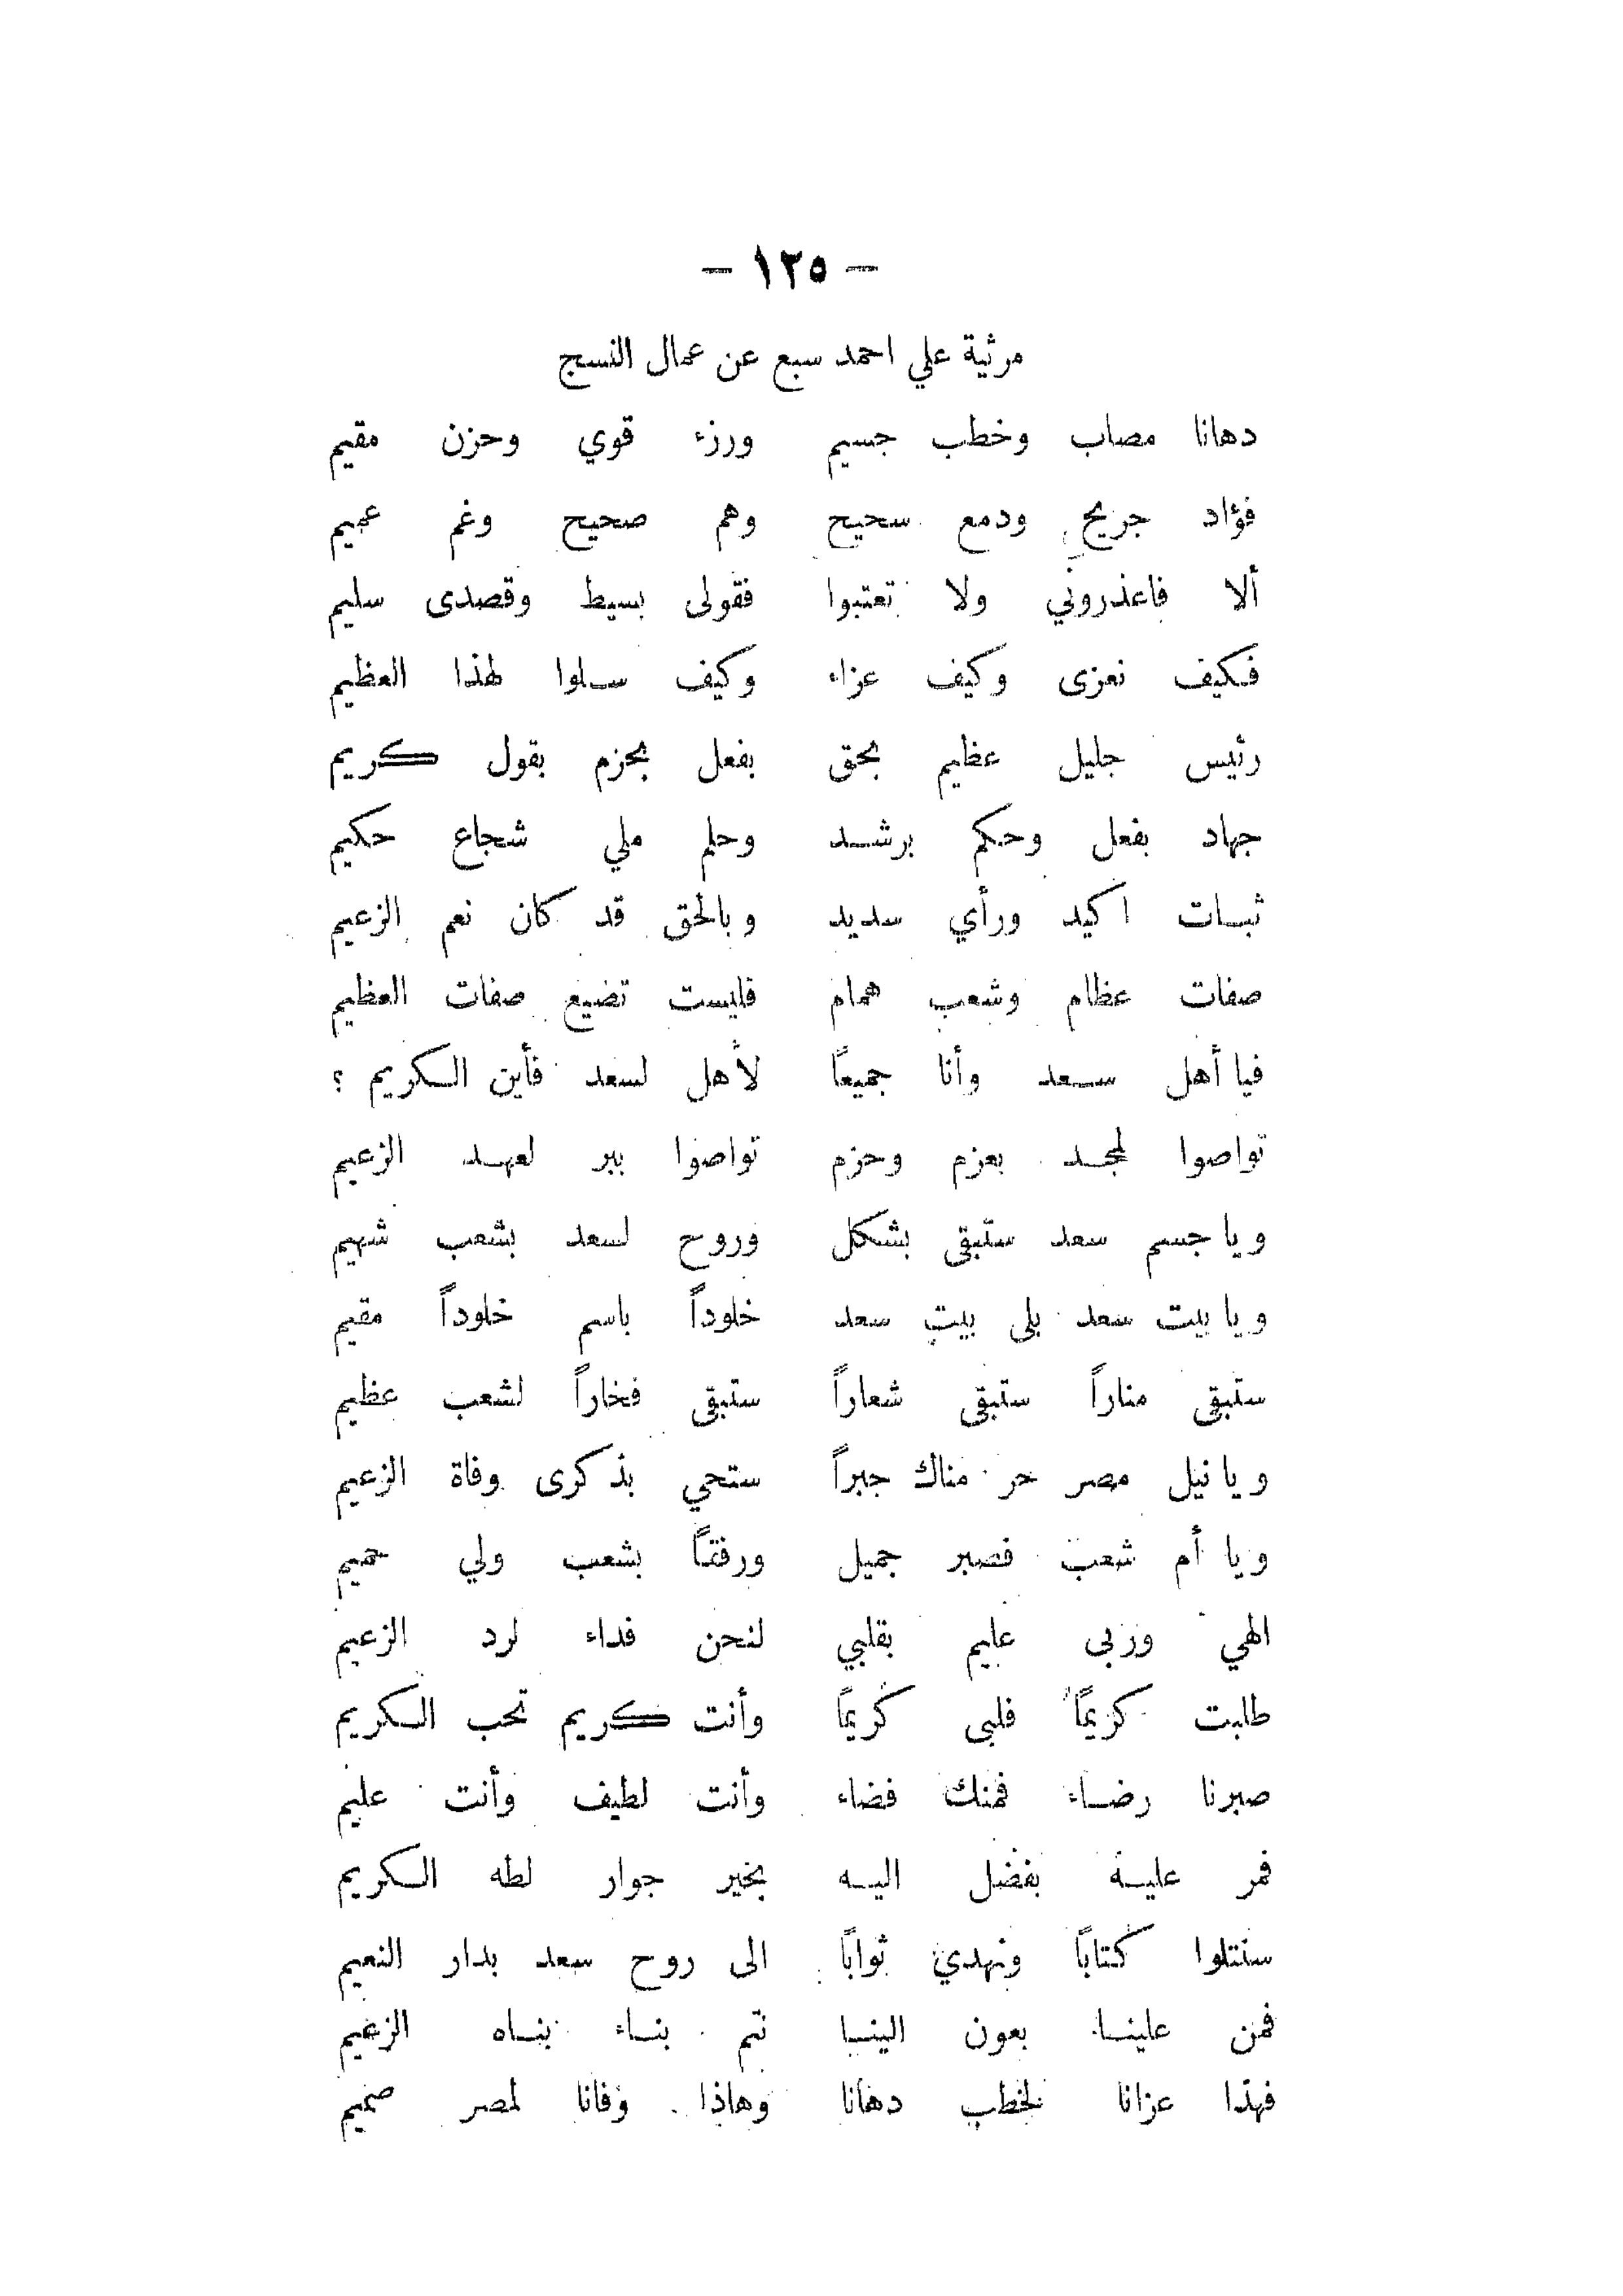 — ١٣٥ —
مرثية علي احمد سبع عن عمال النسج
دهانا مصاب وخطب جسيم ورزء قوي وحزن مقيم
فؤاد جريح ودمع سحيح وهم صحيح وغم عميم
ألا فاعذروني ولا تعتبوا فقولى بسيط وقصدى سليم
فكيف نعزى وكيف عزاء وكيف سلوا لهذا العظيم
رئيس جليل عظيم بحق بفعل بحزم بقول كريم
جهاد بفعل وحكم برشد وحلم ملي شجاع حكيم
ثبات اكيد ورأي سديد وبالحق قد كان نعم الزعيم
صفات عظام وشعب همام فليست تضيع صفات العظيم
فيا أهل سعد وأنا جميعاً لأهل لسعد فأين الكريم ؟
تواصوا لمجد بعزم وحزم تواصوا ببر لعهد الزعيم
ويا جسم سعد ستبقى بشكل وروح لسعد بشعب شهيم
ويا بيت سعد بلى بيت سعد خلوداً باسم خلوداً مقيم
ستبقى مناراً ستبقى شعاراً ستبقى فخاراً لشعب عظيم
ويا نيل مصر حر مناك جبراً ستحي بذكرى وفاة الزعيم
ويا أم شعب فصبر جميل ورفقاً بشعب ولي حميم
الهي وربى عليم بقلبي لنحن فداء لرد الزعيم
طلبت كريماً فلبى كريماً وأنت كريم تحب الكريم
صبرنا رضاء فمنك قضاء وأنت لطيف وأنت عليم
فمر عليه بفضل اليه بخير جوار لطه الكريم
سنتلوا كتاباً ونهدي ثواباً الى روح سعد بدار النعيم
فمن علينا بعون الينا نتم بناء بناه الزعيم
فهذا عزانا لخطب دهانا وهاذا وفانا لمصر صميم